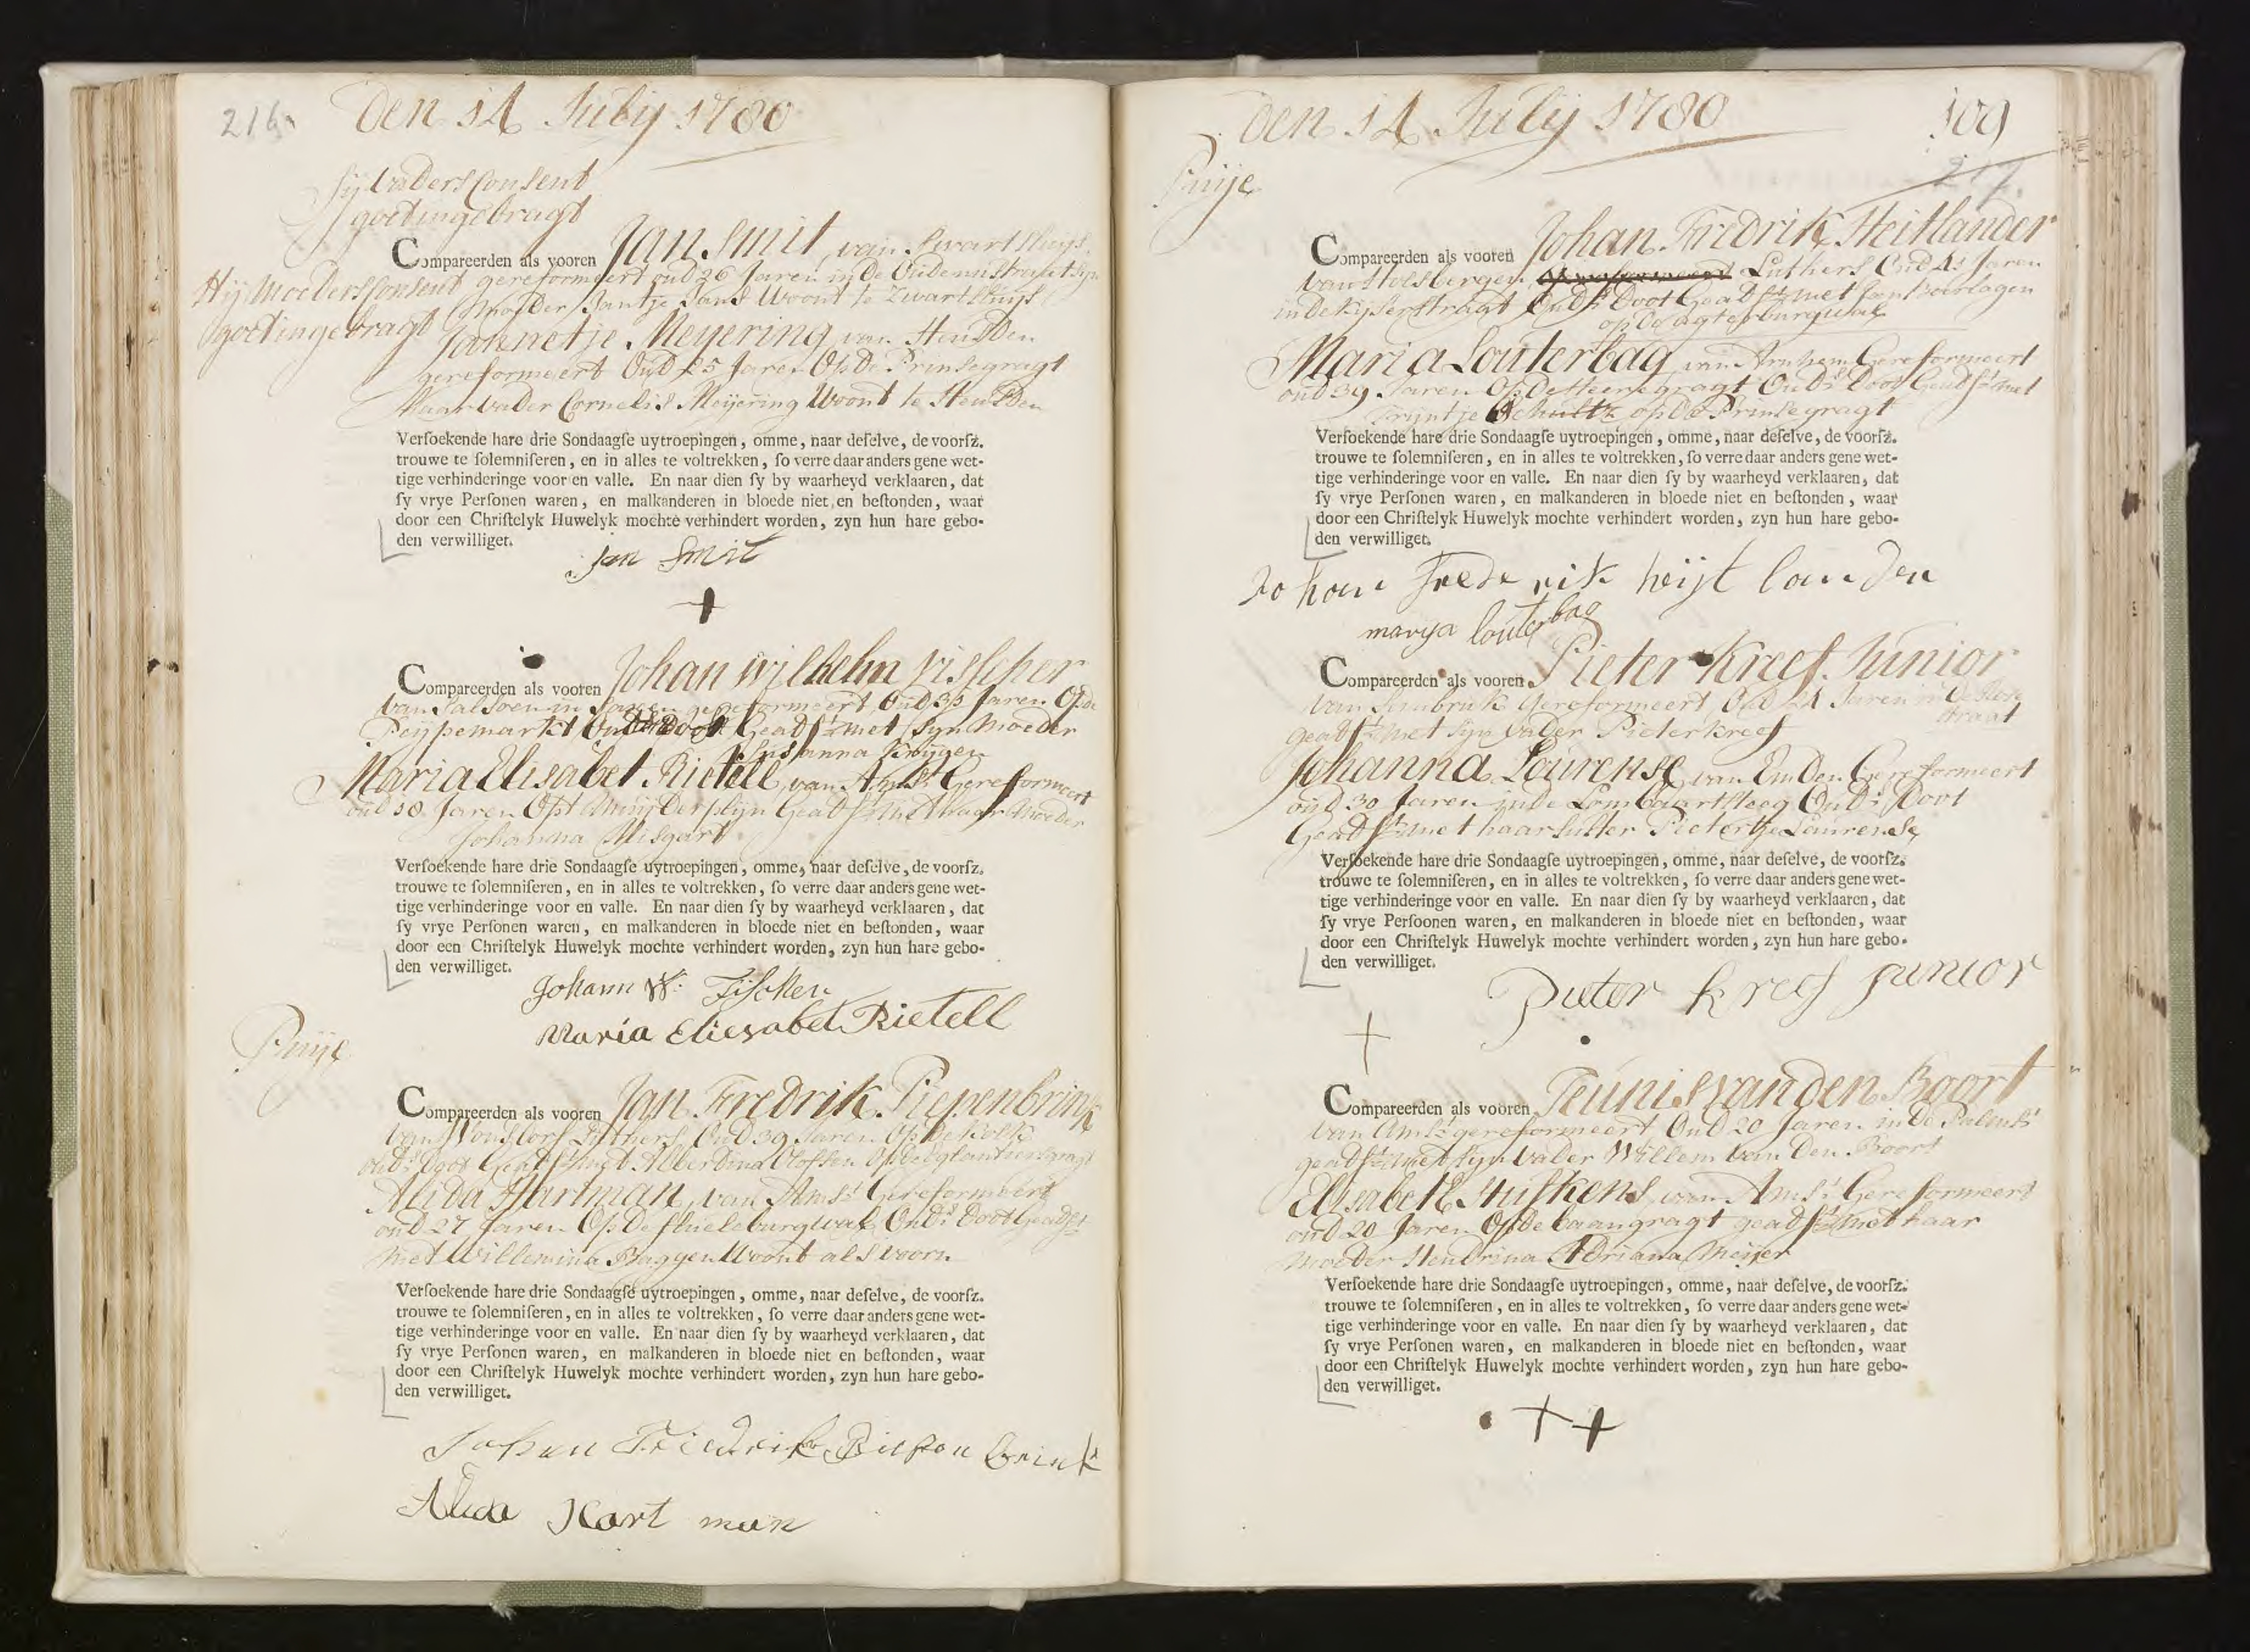 216
Den 14 July 1780
Sij Vaders Consent
goet ingebragt
Compareerden als vooren Jan Smit, van Swartsluijs
Hij Moeders Consent
goet ingebragt
gereformeert oud 26 Jaren in de Oudemanstraat sijn
Moeder Jantje Jans Woont te Zwartsluijs
Jannetje Meyering van Heusden
gereformeert Oud 25 Jaren Op De Prinsegragt
Haar Vader Cornelis Meijering Woont te Heusden
Verſoekende hare drie Sondaagſe uytroepingen, omme, naar deſelve, de voorſz.
trouwe te ſolemniſeren, en in alles te voltrekken, ſo verre daar anders gene wet-
tige verhinderinge voor en valle. En naar dien ſy by waarheyd verklaaren, dat
ſy vrye Perſonen waren, en malkanderen in bloede niet en beſtonden, waar
door een Chriſtelyk Huwelyk mochte verhindert worden, zyn hun hare gebo-
den verwilliget.
Jan Smit
Compareerden als vooren Johan Wilhelm Visscher
gereformeert Oud 35 Jaren Op de
Peijpemarkt Geadst met Sijn Moeder
Susanna Kruijgen
Maria Elisabet Rietell van Amst Gereformeert
oud 38 Jaren Op't Muijderplijn Geadst met haar Moeder
Johanna Misgart
Verſoekende hare drie Sondaagſe uytroepingen, omme, naar deſelve, de voorſz.
trouwe te ſolemniſeren, en in alles te voltrekken, ſo verre daar anders gene wet-
tige verhinderinge voor en valle. En naar dien ſy by waarheyd verklaaren, dat
ſy vrye Perſonen waren, en malkanderen in bloede niet en beſtonden, waar
door een Chriſtelyk Huwelyk mochte verhindert worden, zyn hun hare gebo-
den verwilliget.
Johann W: Fischer
Maria Eliesabet Rietell
Puije
Compareerden als vooren Jan Fredrik Piepenbrink
Luthers Oud 39 Jaren Op de Kolk
Ouds Doot Geadst met Alberdina Oloffen Op de Eglantiersgragt
Alida Hartman, van Amst Gereformeert
oud 27 Jaren Op De flueleburgwal Ouds Doot Geadst
met Willemina Baggen Woont als Voorn
Verſoekende hare drie Sondaagſe uytroepingen, omme, naar deſelve, de voorſz.
trouwe te ſolemniſeren, en in alles te voltrekken, ſo verre daar anders gene wet-
tige verhinderinge voor en valle. En naar dien ſy by waarheyd verklaaren, dat
ſy vrye Perſonen waren, en malkanderen in bloede niet en beſtonden, waar
door een Chriſtelyk Huwelyk mochte verhindert worden, zyn hun hare gebo-
den verwilliget.
Johan Friedrik Biepen brink
Alida Hart man
Den 14 Julij 1780
109
217.
Puije
Compareerden als vooren Johan Fredrik Heitlander
van Stolsbergen Luthers Oud 41 Jaren
in de Kijserstraat Ouds Doot Geadst met Jan Boerlagen
op de agterburgwal
Maria Louterbag van Arnhem Gereformeert
oud 39 Jaren Op De Heeregragt Ouds Doot Geadst met
Trijntje Schultz op de Prinsegragt
Verſoekende hare drie Sondaagſe uytroepingen, omme, naar deſelve, de voorſz.
trouwe te ſolemniſeren, en in alles te voltrekken, ſo verre daar anders gene wet-
tige verhinderinge voor en valle. En naar dien ſy by waarheyd verklaaren, dat
ſy vrye Perſonen waren, en malkanderen in bloede niet en beſtonden, waar
door een Chriſtelyk Huwelyk mochte verhindert worden, zyn hun hare gebo-
den verwilliget.
Johan Frede rik heijt landen
marya louterbag
Compareerden als vooren Pieter Kreef Junior
Gereformeert, Oud 24 Jaren in de
straat
geadst met Sijn Vader Pieter Kreef
Johanna Lourense van Emden Gereformeert
oud 30 Jaren in de Lombaartsteeg Ouds Doot
Geadst met haar Suster Pietertje Laurense
Verſoekende hare drie Sondaagſe uytroepingen, omme, naar deſelve, de voorſz.
trouwe te ſolemniſeren, en in alles te voltrekken, ſo verre daar anders gene wet-
tige verhinderinge voor en valle. En naar dien ſy by waarheyd verklaaren, dat
ſy vrye Perſoonen waren, en malkanderen in bloede niet en beſtonden, waar
door een Chriſtelyk Huwelyk mochte verhindert worden, zyn hun hare gebo-
den verwilliget.
Pieter Kreef Junior
Compareerden als vooren Teunis van den Boort
van Amst gereformeert Oud 20 Jaren in De Palmst
geadst met Sijn Vader Willem van Den Boort
Elisabeth Huskens, van Amst Gereformeert
oud 20 Jaren Op de baangragt geadst met haar
Moeder Hendrina Adriana Meijer
Verſoekende hare drie Sondaagſe uytroepingen, omme, naar deſelve, de voorſz.
trouwe te ſolemniſeren, en in alles te voltrekken, ſo verre daar anders gene wet-
tige verhinderinge voor en valle. En naar dien ſy by waarheyd verklaaren, dat
ſy vrye Perſonen waren, en malkanderen in bloede niet en beſtonden, waar
door een Chriſtelyk Huwelyk mochte verhindert worden, zyn hun hare gebo-
den verwilliget.